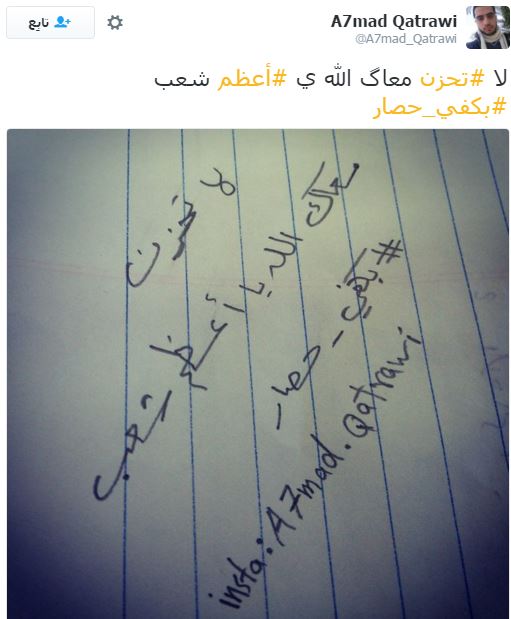 A7mad Qatrawi
@A7mad_Qatrawi
تابع
لا #تحزن معاگ الله ي #أعظم شعب
#بكفي_حصار
لا تحزن
معاك الله يا أعظم شعب
#بكفي_حصار
insta: A7mad.Qatrawi